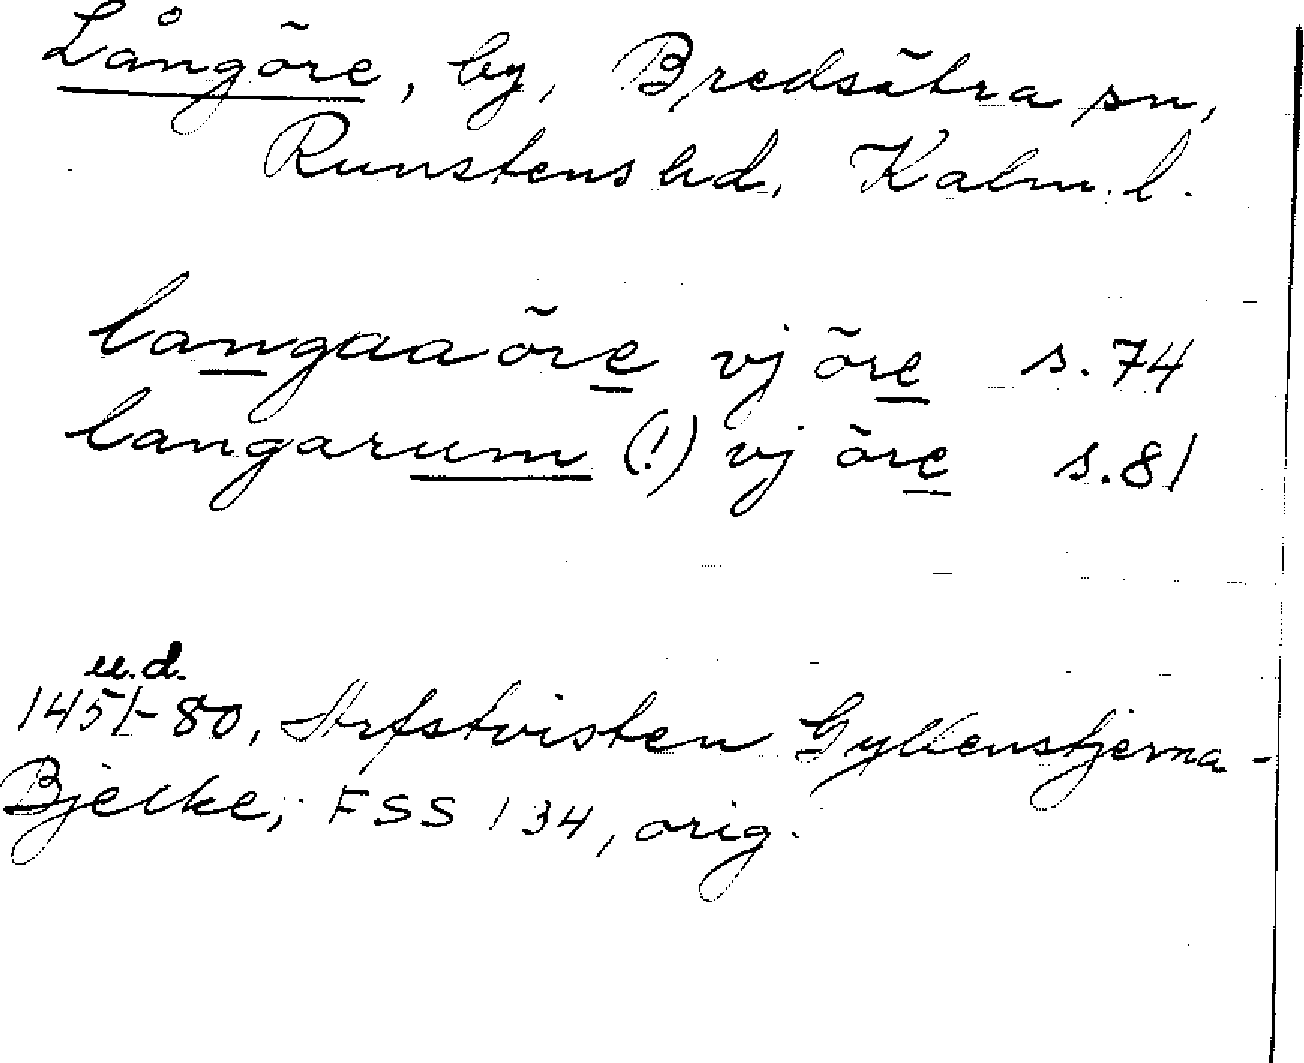 Långöre, by, Bredsätra sn,
Runstens hd, Kalm. l.
langaaöre vj öre s. 74
langarum (!) vj öre s. 81
u.d.
1451-80, Arfstvisten Gyllenstjerna-
Bjelke, FSS 134, orig.